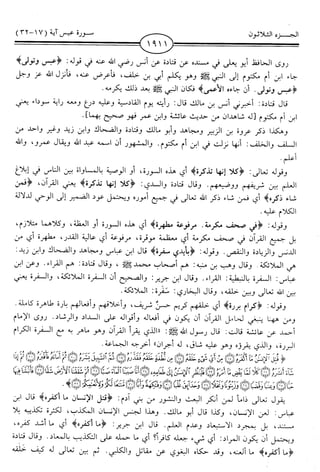 الجزء الثلاثون
١٩١١
سورة عبس آية (١٧-٣٢)
روى الحافظ أبو يعلى في مسنده عن قتادة عن أنس رضي الله عنه في قوله: ﴿عبس وتولى﴾
جاء ابن أم مكتوم إلى النبي ﷺ وهو يكلم أبي بن خلف، فأعرض عنه، فأنزل الله عز وجل
﴿عبس وتولى. أن جاءه الأعمى﴾ فكان النبي ﷺ بعد ذلك يكرمه.
قال قتادة: أخبرني أنس بن مالك قال: رأيته يوم القادسية وعليه درع ومعه راية سوداء يعني
ابن أم مكتوم [له شاهدان من حديث عائشة وابن عمر فهو صحيح بهما].
وهكذا ذكر عروة بن الزبير ومجاهد وأبو مالك وقتادة والضحاك وابن زيد وغير واحد من
السلف والخلف: أنها نزلت في ابن أم مكتوم. والمشهور أن اسمه عبد الله ويقال عمرو، والله
أعلم.
وقوله تعالى: ﴿كلا إنها تذكرة﴾ أي هذه السورة، أو الوصية بالمساواة بين الناس في إبلاغ
العلم بين شريفهم ووضيعهم. وقال قتادة والسدي: ﴿كلا إنها تذكرة﴾ يعني القرآن، ﴿فمن
شاء ذكره﴾ أي فمن شاء ذكر الله تعالى في جميع أموره ويحتمل عود الضمير إلى الوحي لدلالة
الكلام عليه.
وقوله: ﴿في صحف مكرمة. مرفوعة مطهرة﴾ أي هذه السورة أو العظة، وكلاهما متلازم،
بل جميع القرآن في صحف مكرمة أي معظمة موقرة، مرفوعة أي عالية القدر، مطهرة أي من
الدنس والزيادة والنقص. وقوله: ﴿بأيدي سفرة﴾ قال ابن عباس ومجاهد والضحاك وابن زيد:
هي الملائكة. وقال وهب بن منبه: هم أصحاب محمد ﷺ، وقال قتادة: هم القراء. وعن ابن
عباس: السفرة بالنبطية: القراء. وقال ابن جرير: والصحيح أن السفرة الملائكة، والسفرة يعني
بين الله تعالى وبين خلقه، وقال البخاري: سفرة: الملائكة.
وقوله: ﴿كرام بررة﴾ أي خلقهم كريم حسن شريف، وأخلاقهم وأفعالهم بارة طاهرة كاملة.
ومن ههنا ينبغي لحامل القرآن أن يكون في أفعاله وأقواله على السداد والرشاد. روى الإمام
أحمد عن عائشة قالت: قال رسول الله ﷺ: «الذي يقرأ القرآن وهو ماهر به مع السفرة الكرام
البررة، والذي يقرؤه وهو عليه شاق، له أجران» أخرجه الجماعة.
يقول تعالى ذاما لمن أنكر البعث والنشور من بني آدم: ﴿قتل الإنسان ما أكفره﴾ قال ابن
عباس: لعن الإنسان، وكذا قال أبو مالك. وهذا لجنس الإنسان المكذب، لكثرة تكذيبه بلا
مستند، بل بمجرد الاستبعاد وعدم العلم. قال ابن جرير: ﴿ما أكفره﴾ أي ما أشد كفره،
ويحتمل أن يكون المراد: أي شيء جعله كافرا؟ أي ما حمله على التكذيب بالمعاد. وقال قتادة
﴿ما أكفره﴾ ما ألعنه، وقد حكاه البغوي عن مقاتل والكلبي. ثم بين تعالى له كيف خلقه